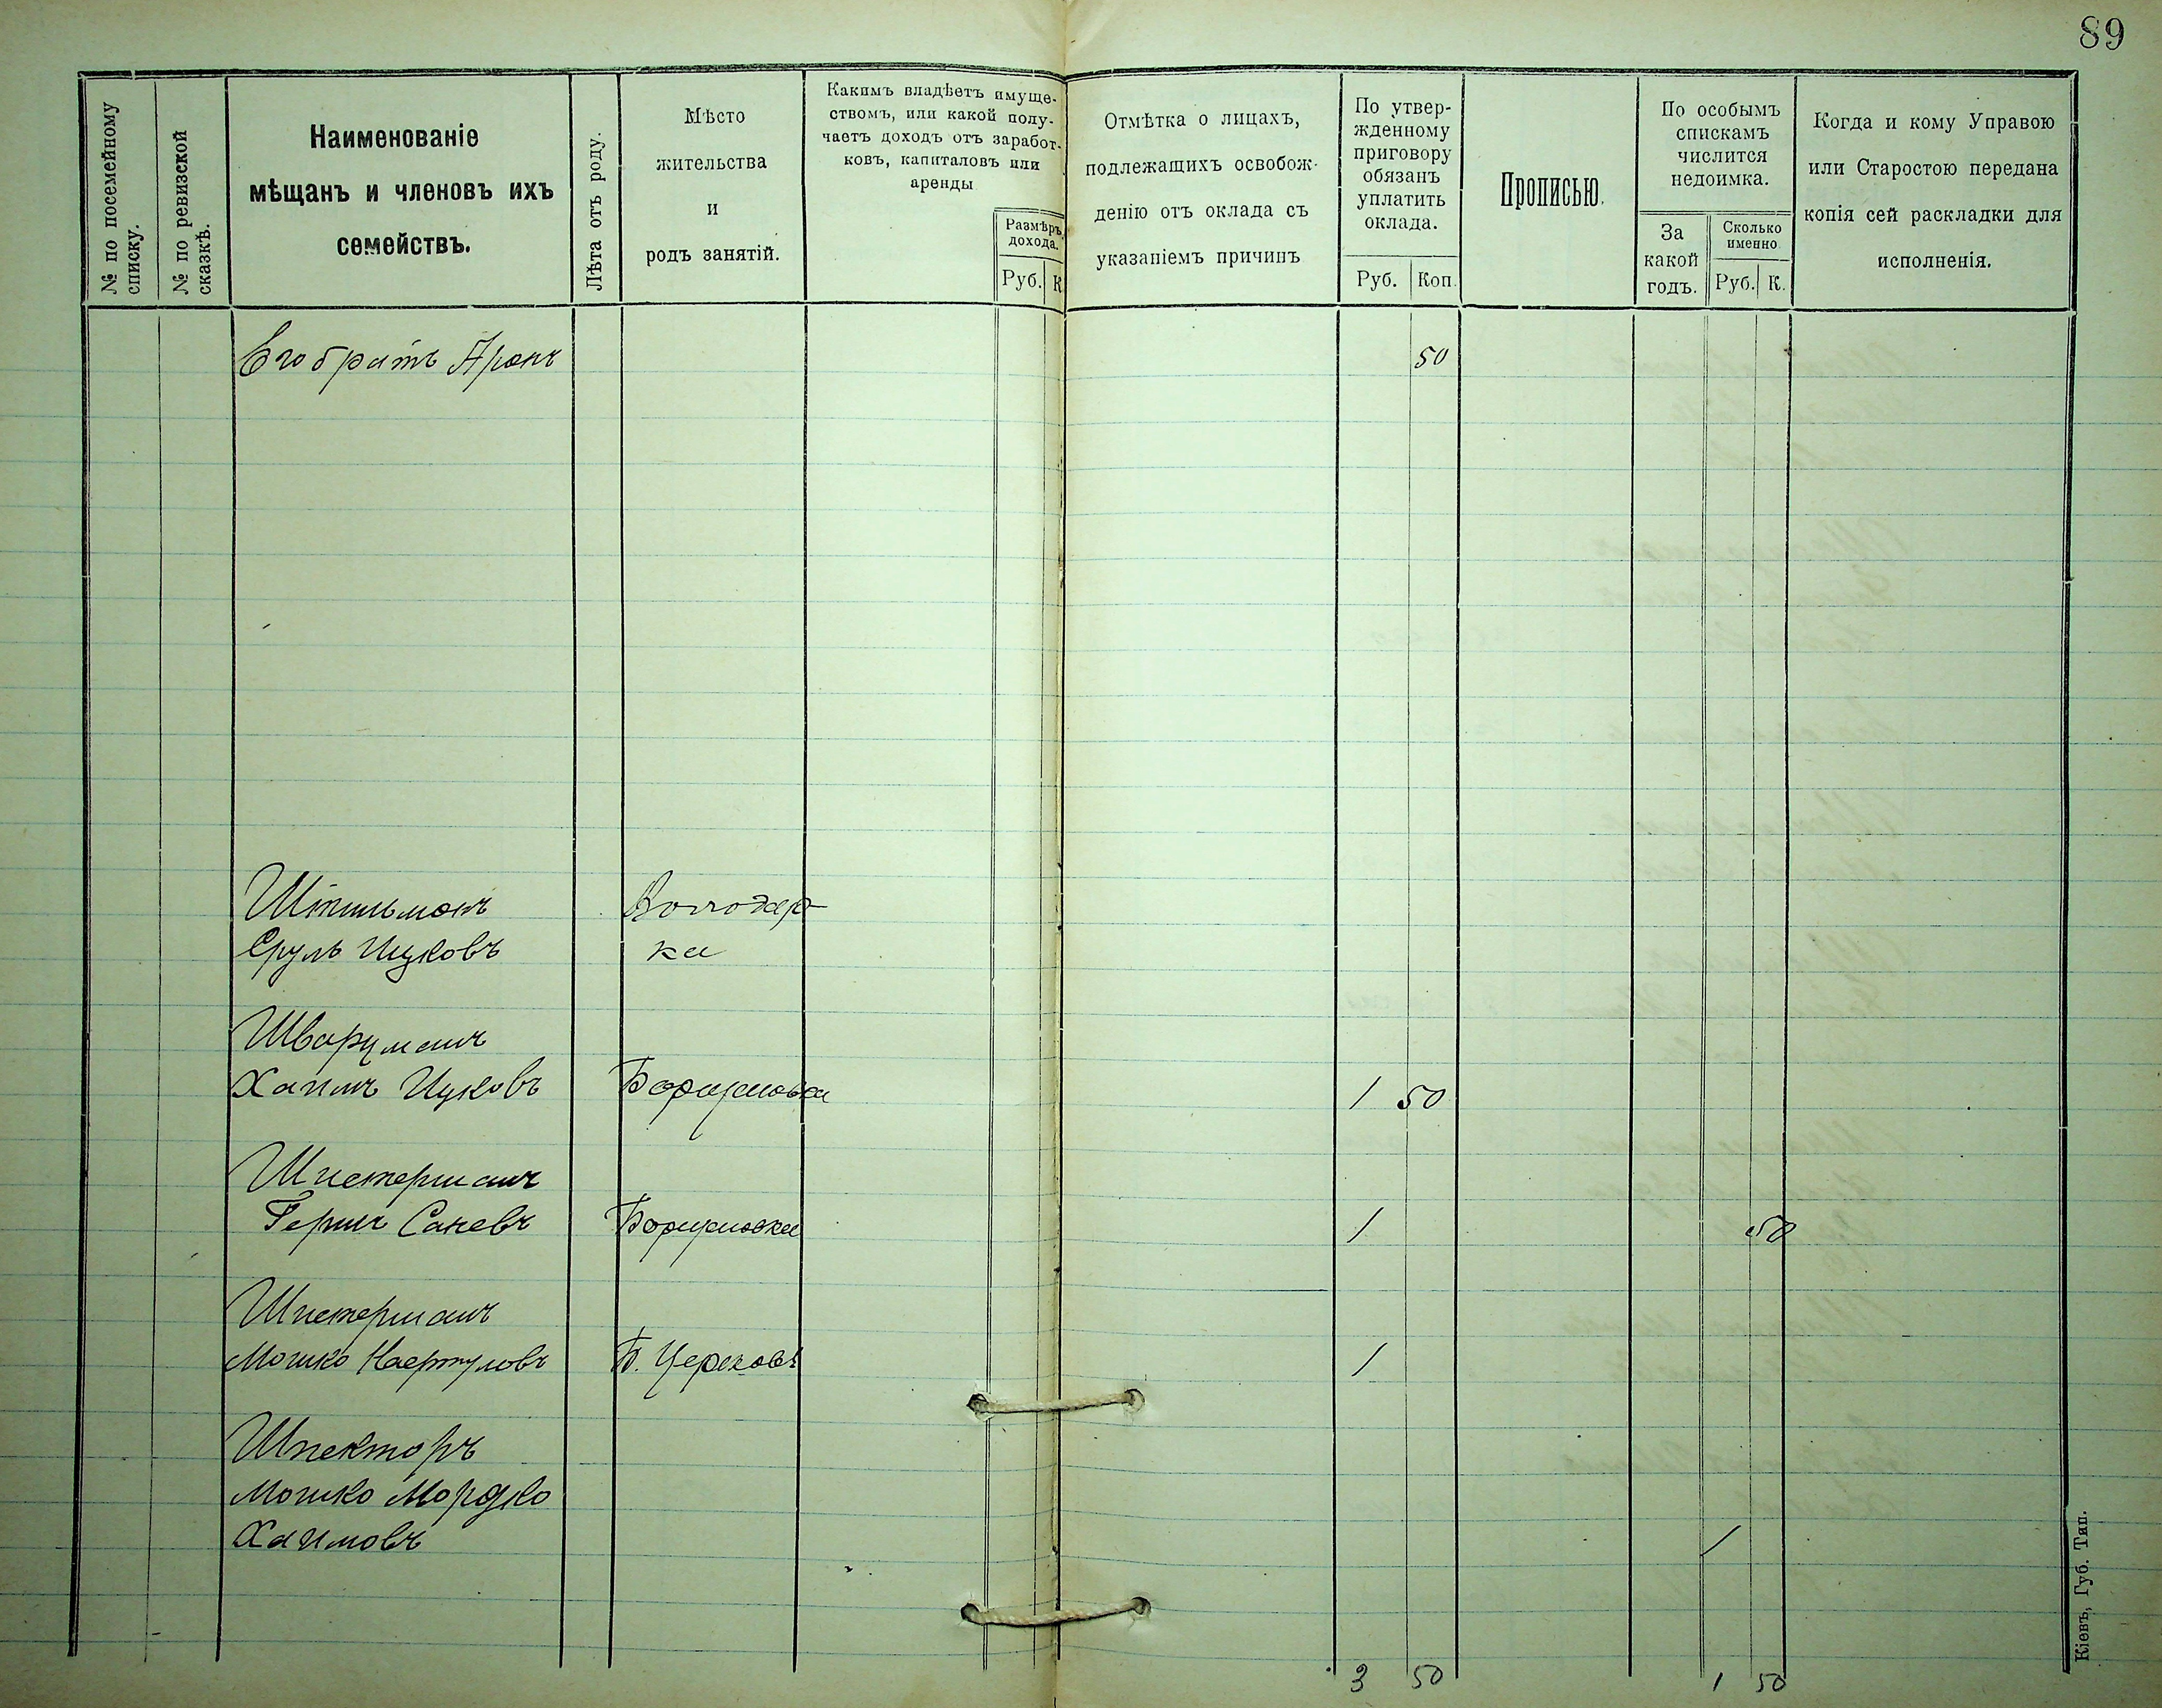 89
№ по посемейному
списку.
№ по ревизской
сказкѣ.
Наименованіе
мѣщанъ и членовъ ихъ
семействъ.
Лѣта отъ роду.
Мѣсто
жительства
и
родъ занятій.
Какимъ владѣетъ имуще-
ствомъ, или какой полу-
чаетъ доходъ отъ заработ-
ковъ, капиталовъ или
аренды
Размѣръ
дохода.
Руб. К
Отмѣтка о лицахъ,
подлежащихъ освобож-
денію отъ оклада съ
указаніемъ причинъ
По утвер-
жденному
приговору
обязанъ
уплатить
оклада.
Руб. Коп.
Прописью.
По особымъ
спискамъ
числится
недоимка.
За
какой
годъ.
Сколько
именно
Руб. К.
Когда и кому Управою
или Старостою передана
копія сей раскладки для
исполненія.
Его братъ Аронъ 50
Штильманъ Володар
Сруль Ицковъ ка
Шварцманъ
Хаимъ Ицковъ 1 50
Шпетерманъ
Гершъ 1 50
Шпетерманъ
Мошко Б. Церковь 1
Шпекторъ
Мошко Мордко
Хаимовъ 1
3 50 1 50
Кіевъ, Губ. Тип.